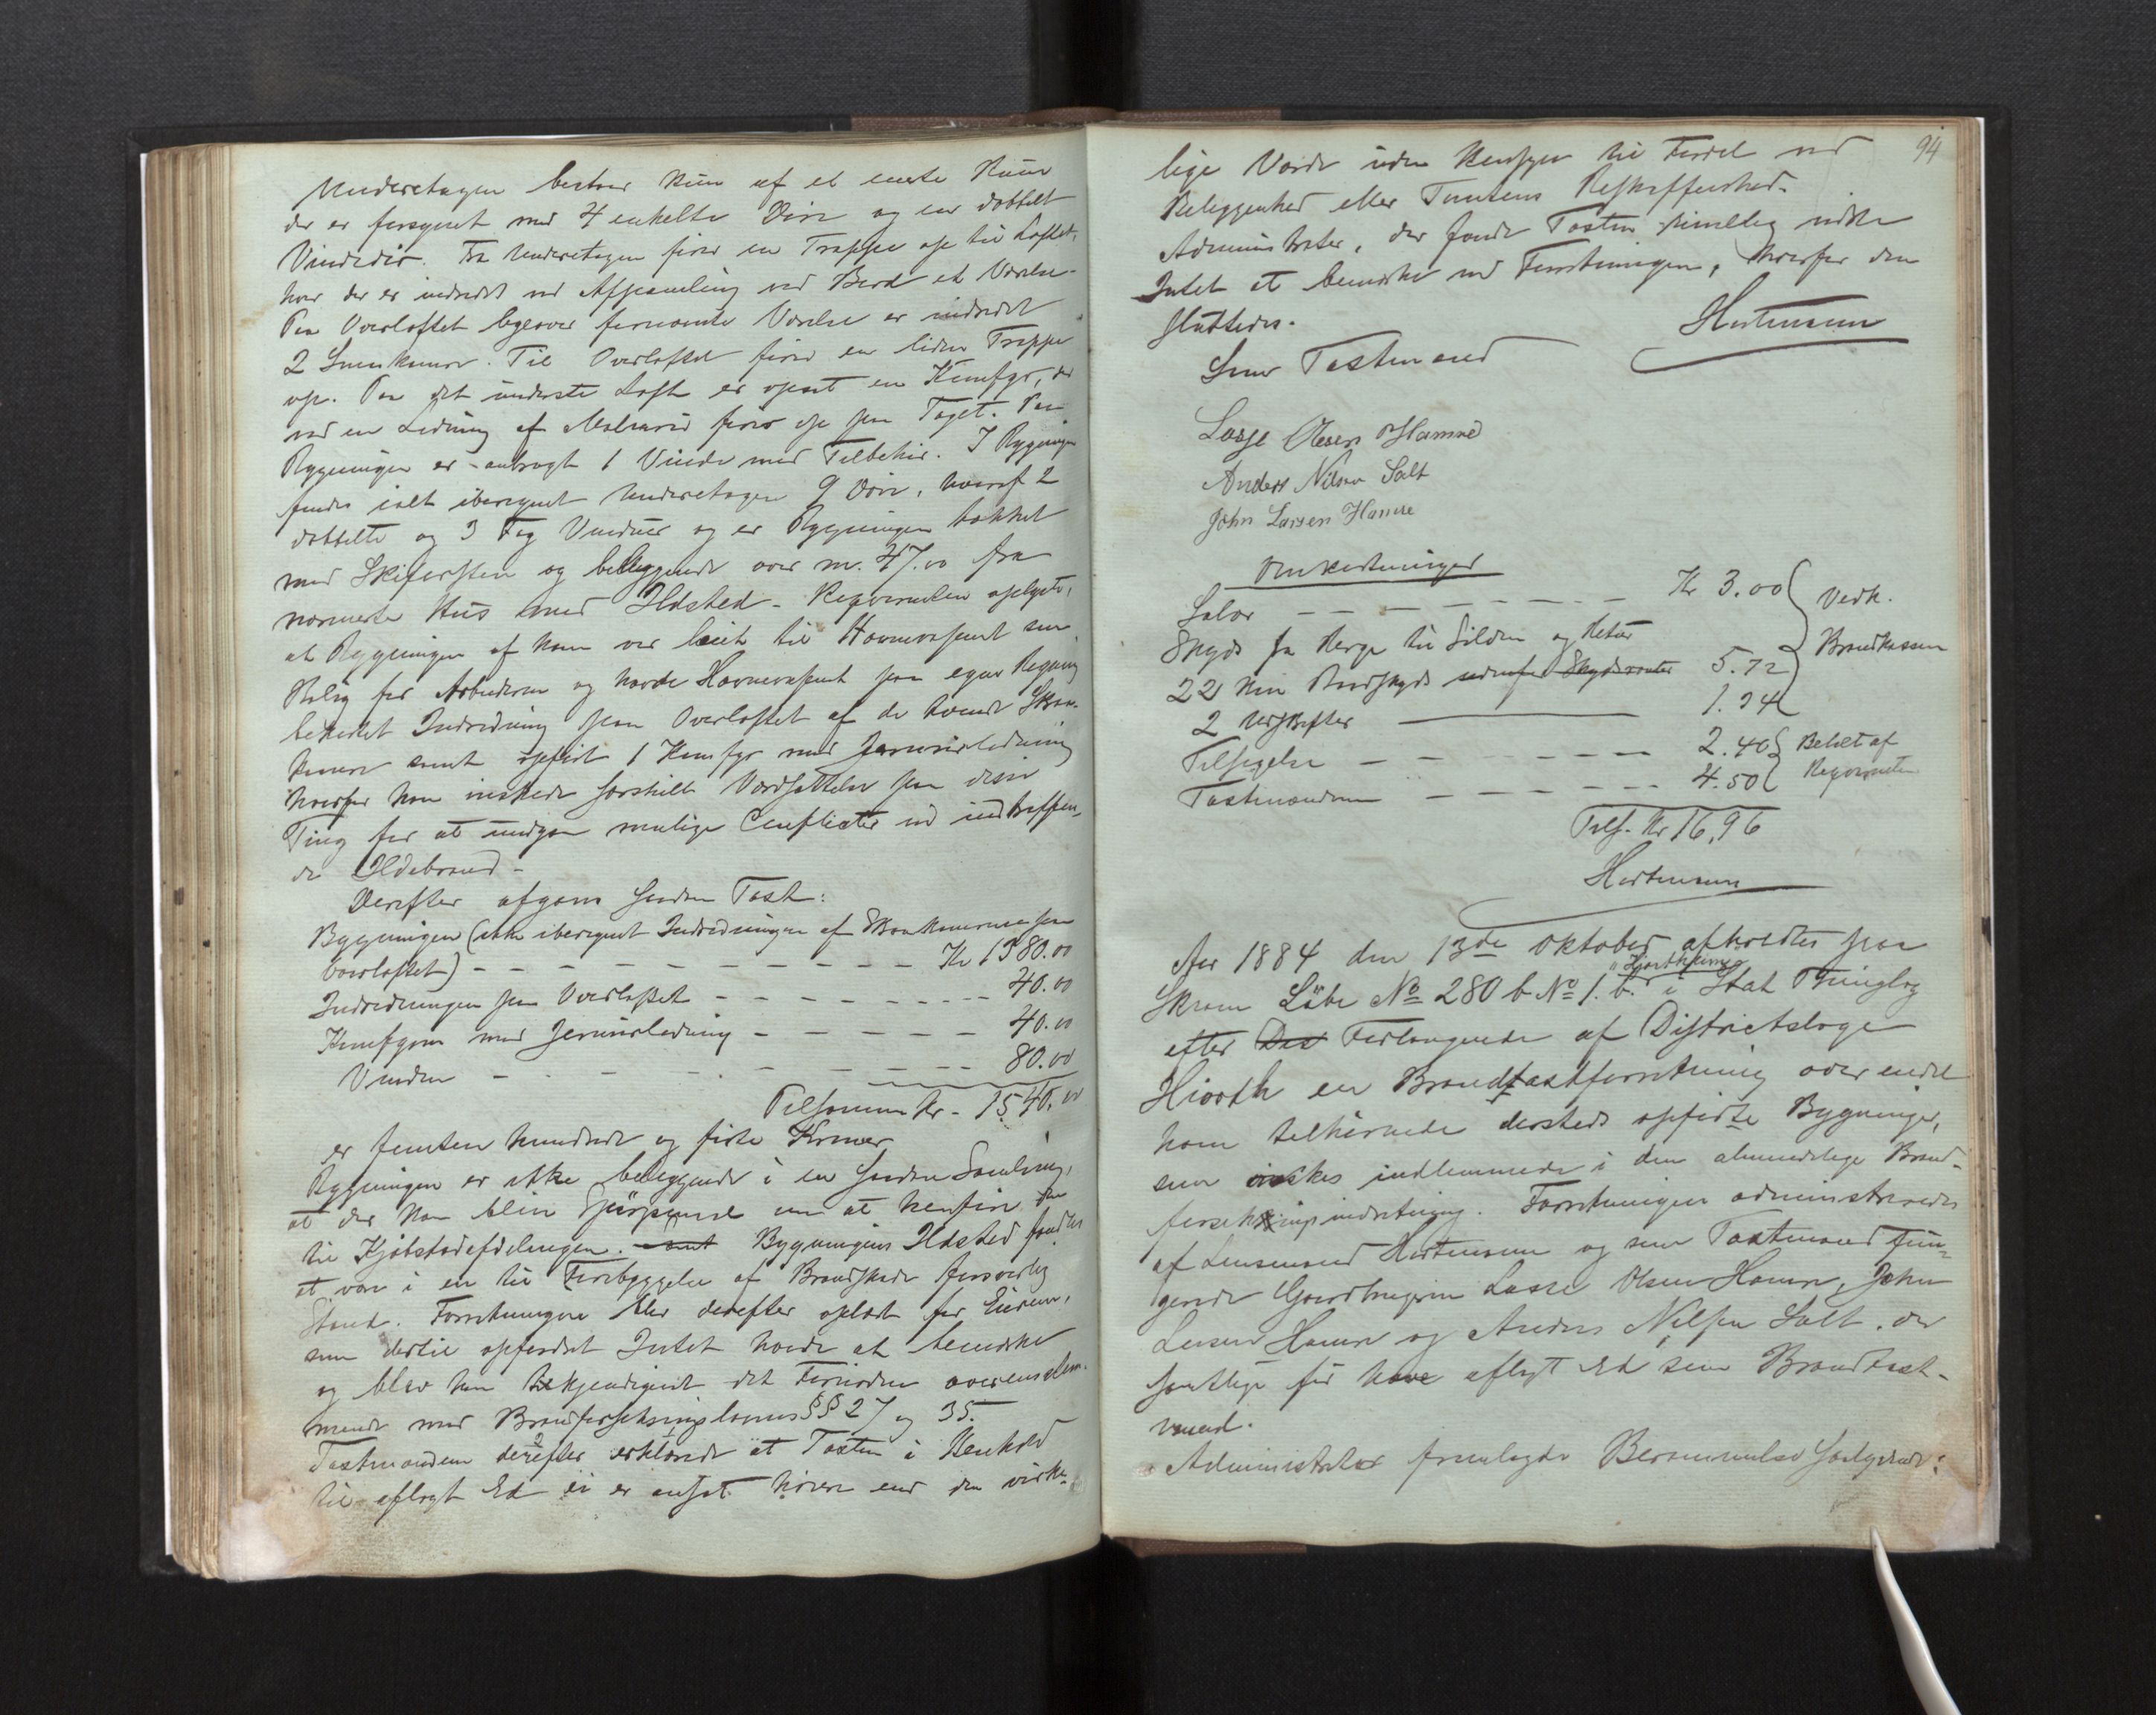 Underetagen bestaar kun af et eneste Rum
der er forsynet med 4 enkelte Döre og en dobbelt
Vindedör. Fra Underetagen förer en Trappe op til Loftet,
hvor der er indredet ved Afpanling ved Bord et Værelse.
Paa Overloftet ligeover fornævnte Værelse er indredet
2 Smaakamre. Til Overloftet förer en liden Trappe
op. Paa det underste Loft er opsat en Komfyr, der
ved en Ledning af förer op paa Taget. Paa
Bygningen er anbragt 1 Vinde med Tilbehör. I Bygningen
findes ialt iberegnet Underetagen 9 Döre, hvoraf 2
dobbelte og 3 Fag Vinduer og er Bygningen tækket
med Skifersten og beliggende over m. 47.00 fra
nærmeste Hus med Ildsted. Rekvirenten oplyste,
at Bygningen af ham var leiet til Havnevæsenet som
Bolig for Arbeiderne og havde Havnevæsenet paa egen Regning
bekostet Indredning paa Overloftet af de tvende Smaa-
kamre samt opført 1 Komfyr med Jernrörledning
hvorfor han önskede særskilt Værdsættelse paa disse
Ting for at undgaa mulige Conflicter ved indtræffen-
de Ildebrand.
Derefter afgaves saadan Taxt:
Bygningen (ikke iberegnet Indredningen af Smaakamrene paa
Overloftet) - - - - - - - - - - Kr 1380.00
Indredningen paa Overloftet - - - - - - - - 40.00
Komfyren med Jernrörledning - - - - - - 40.00
Vinden - - - - - - - - - 80.00
Tilsammen Kr. 1540.00
er femten hundrede og firti Kroner
Bygningen er ikke beliggende i en saadan Samling,
at der kan blive Spörgsmaal om at henföre den
til Kjöbstadafdelingen. samt Bygningens Ildsted fandtes
at være i en til Forebyggelse af Brandskade forsvarlig
Stand. Forretningen blev derefter oplæst for Eieren,
som dertil opfordret Intet havde at bemærke
og blev ham bekjendtgjort det Fornödne overensstem-
mende med Brandforsikringslovens §§ 27 og 35.
Taxtmændene derefter erklærede at Taxten i Henhold
til aflagt Ed ei er ansat höiere end den virke-
94
lige Værdi uden Hensyn til Fordel ved
Beliggenhed eller Tomtens Beskaffenhed.
Administrator, der fandt Taxten rimelig vidste
Intet at bemærke ved Forretningen, hvorfor den
sluttedes.
Hertensen
Som Taxtmænd
Lasse Olsen Hamre
Anders Nilsen Salt
John Larsen Hamre
Omkostninger
Salær - - - - - - - - Kr 3.00 Vedk.
Skyds fra Berge til Silden og Retur
22 Km Baadskyds udenfor Skydsruter 5.72 Brandkassen
2 Udskrifter 1.34
Tilsigelse - - - - - - 2.40 Betalt af
Taxtmændene - - - - - - 4.50 Rekvirenten
Tils. Kr 16,96
Hertensen
Aar 1884 den 13de Oktober afholdtes paa
"Hjorthjem"
Skram Löbe No 280 b No 1. b. i Stat Thinglag
efter Des Forlangende af Districtslæge
Hiorth en Brandtaxtforretning over endel
ham tilhörende dersteds opförte Bygninger,
som önskes indlemmede i den almindelige Brand-
forsikringsindretning. Forretningen administreredes
af Lensmand Hertensen og som Taxtmænd fun-
gerede Gaardbrugerne Lasse Olsen Hamre, John
Larsen Hamre og Anders Nilsen Salt. der
samtlige för have aflagt Ed som Brandtaxt-
mænd.
Administrator fremlagde Berammelse saalydende: